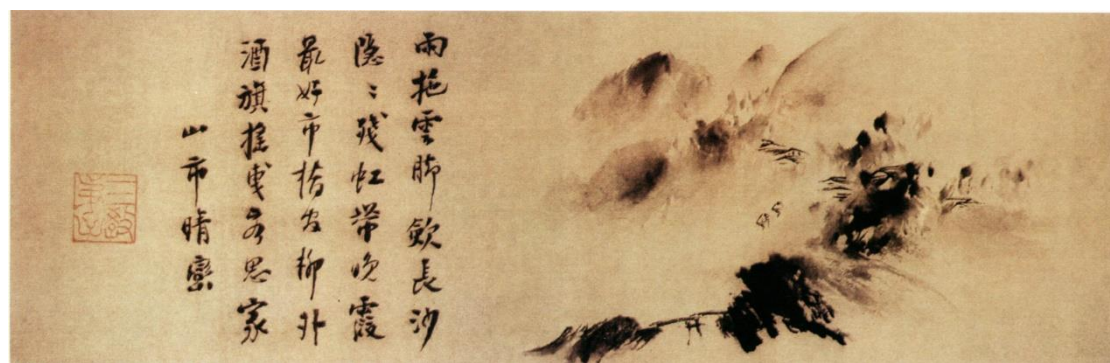 雨拖雲脚歛長沙
隱〻殘虹帶晚霞
最好市橋官柳外
酒旗搖曳客思家
山市晴巒